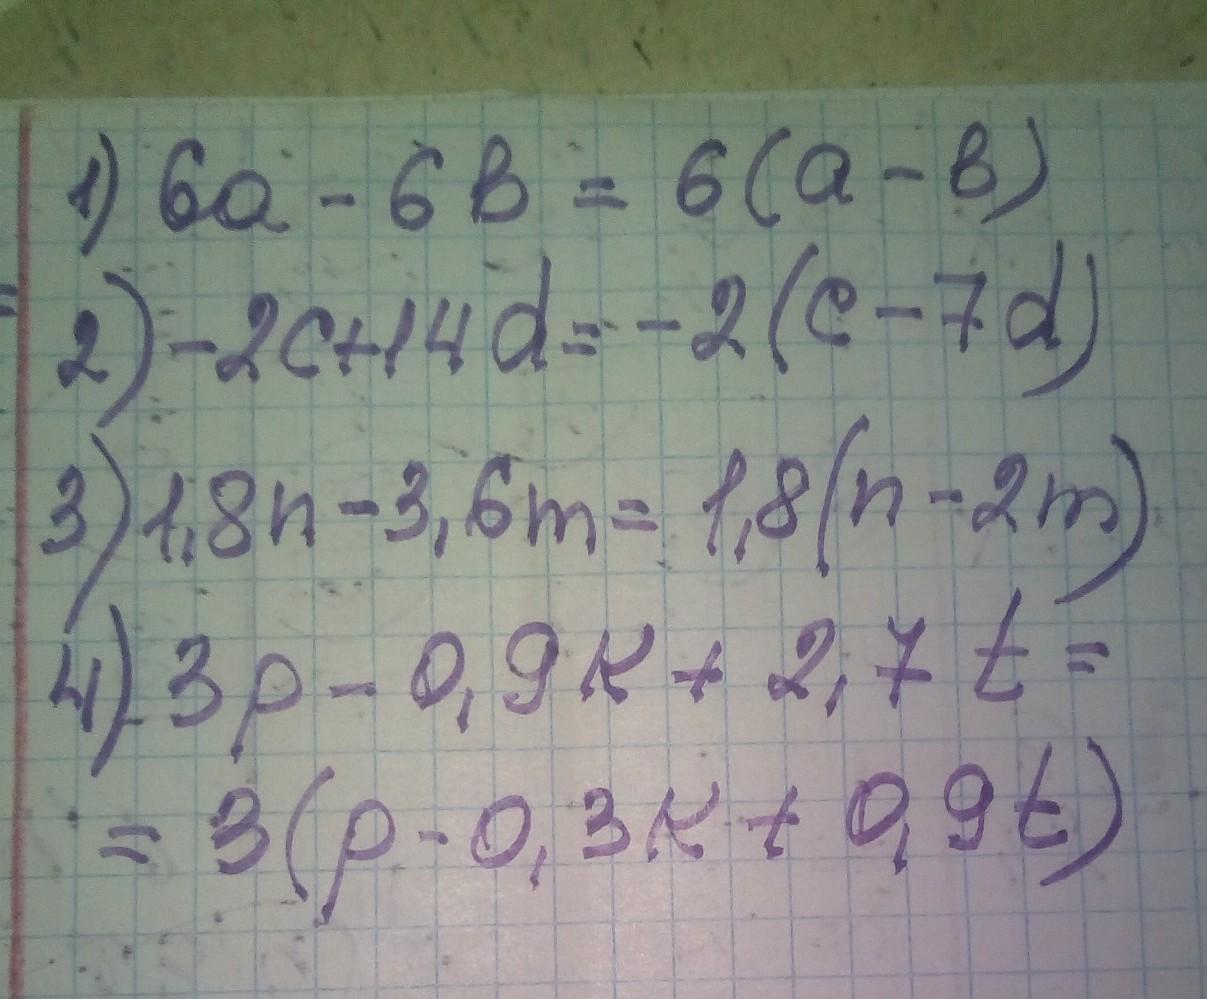 1) 6a - 6b = 6(a - b)
2) -2c+14d = -2(c - 7d)
3) 1,8n - 3,6m = 1,8(n - 2m)
4) 3p - 0,9k + 2,7t =
= 3(p - 0,3k + 0,9t)